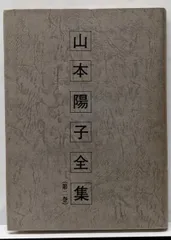 山本陽子全集
〔第一巻〕